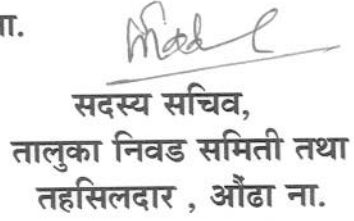 ना.
सदस्य सचिव,
तालुका निवड समिती तथा
तहसिलदार , औंढा ना.